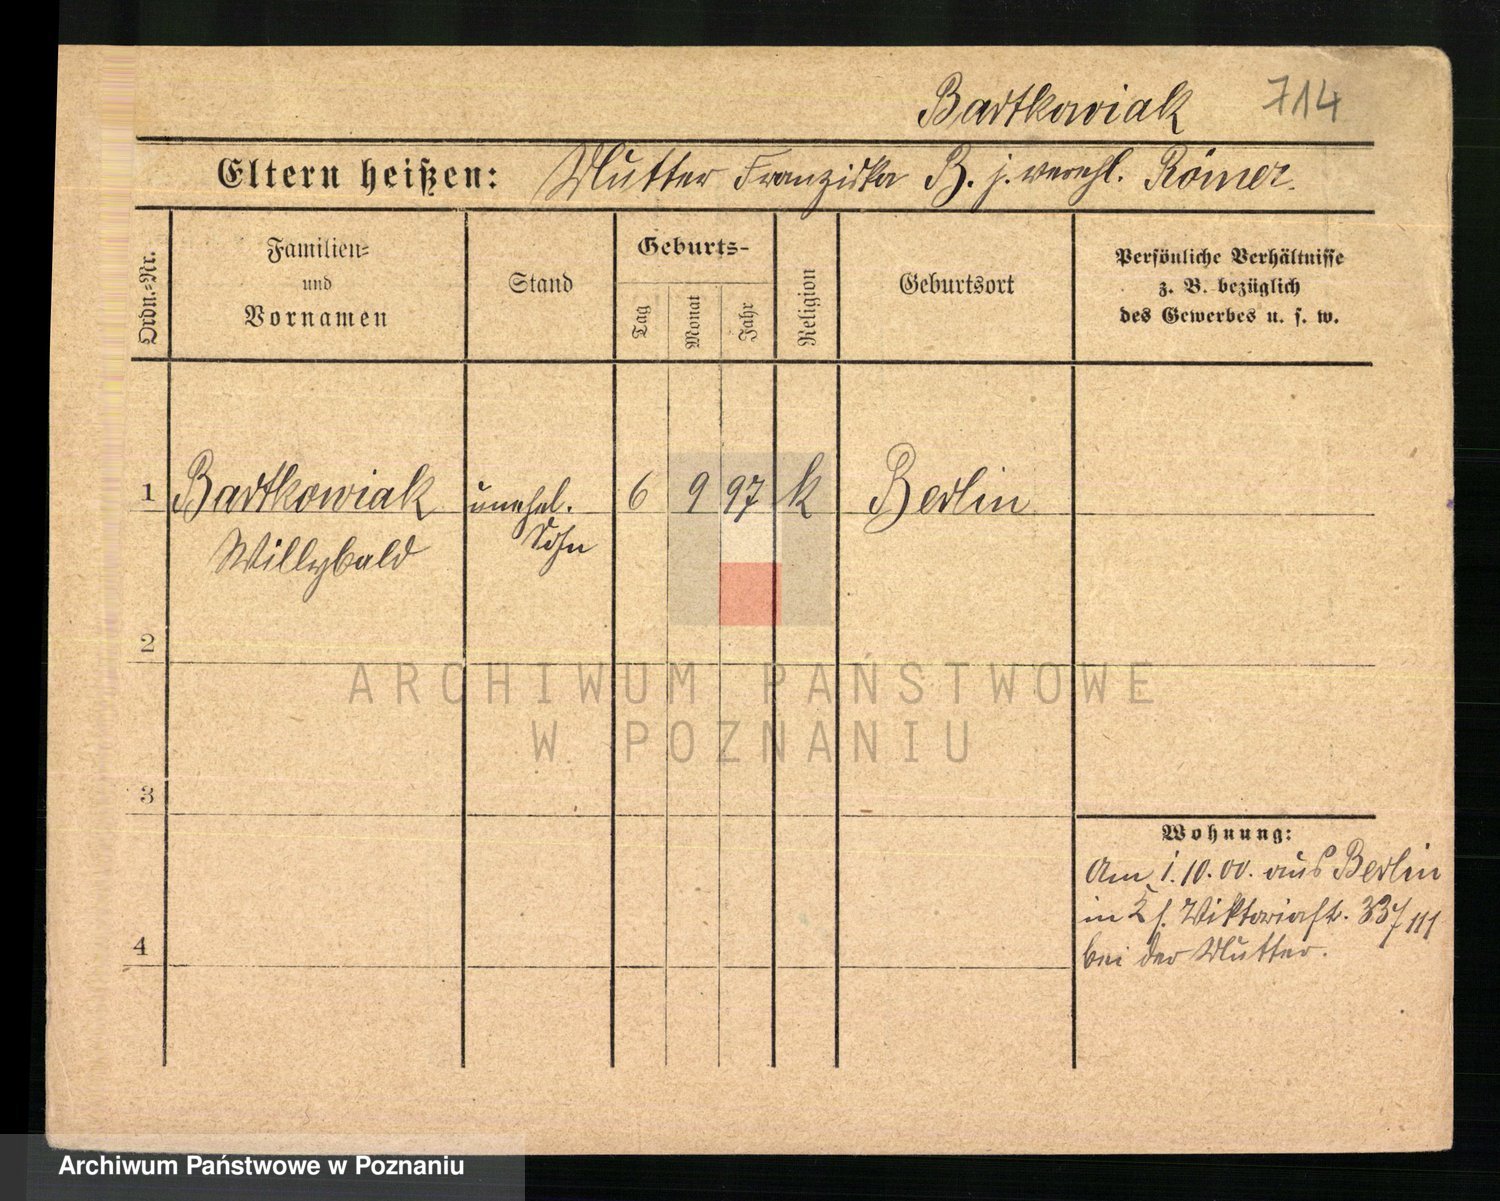 Bartkowiak 714
Eltern heißen: Mutter Franziska B. j. verehl. Römer.
Ordn.=Nr.
Familien=
und
Vornamen
Stand
Geburts-
Tag
Monat
Jahr
Religion
Geburtsort
Persönliche Verhältnisse
z. B. bezüglich
des Gewerbes u. s. w.
1 Bartkowiak unehel. 6 9 97 k Berlin
Willybald Sohn
2
ARCHIWUM PAŃSTWOWE
W POZNANIU
3
Wohnung:
Am 1.10.00. aus Berlin
in Viktoriastr. 33/III
bei der Mutter.
4
Archiwum Państwowe w Poznaniu